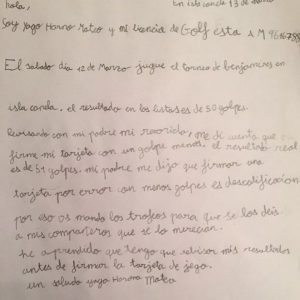 hola,
En isla canela 13 de marzo
Soy Yago Horno Mateo y mi licencia de Golf esta AM
El sabado dia 12 de Marzo jugue el torneo de benjamines en
isla canela. el resultado en los listases de 50 golpes.
Revisando con mi padre mi recorrido, me di cuenta que
firme mi tarjeta con un golpe menos. el resultado real
es de 51 golpes. mi padre me dijo que firmar una
tarjeta por error con menos golpes es descalificacion
por eso os mando los trofeos para que se los deis
a mis compañeros que se lo merecen.
he aprendido que tengo que revisar mis resultados
antes de firmar la tarjeta de juego.
un saludo yago Horno Mateo